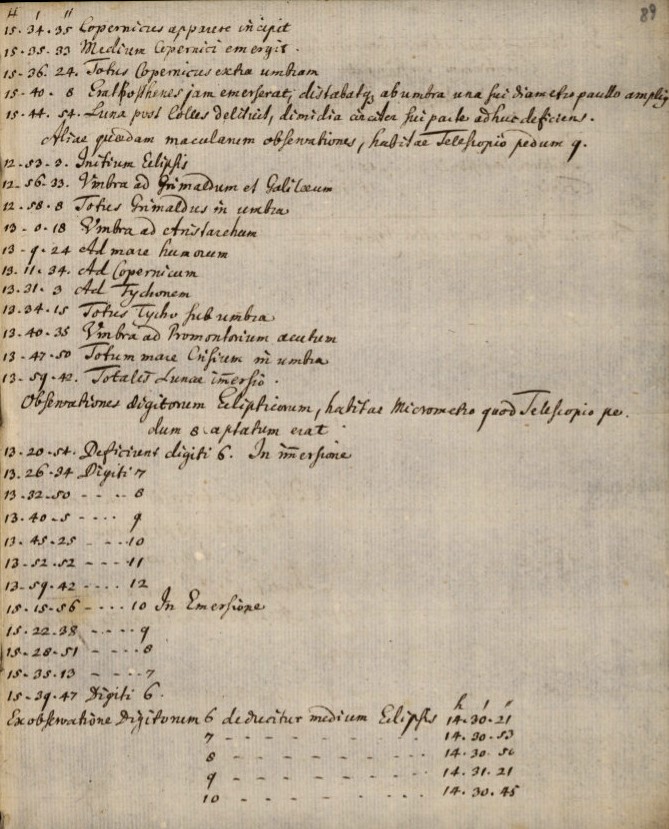 89
H ′ ″
15. 34. 35 Copernicus apparere incipit
15. 35. 33 Medium Copernici emergit.
15. 36. 24. Totus Copernicus extra umbram
15. 40. 8 Erathosthenes jam emerserat, distabatq; ab umbra una sui diametro paullo amplius
15. 44. 54. Luna post Colles delituit, dimidia circiter sui parte adhuc deficiens.
Aliae quaedam macularum observationes, habitae Telescopio pedum 9.
12. 53. 3. Initium Eclipsis
12. 56. 33. Vmbra ad Grimaldum et Galilaeum
12. 58. 8 Totus Grimaldus in umbra
13. 0. 18 Vmbra ad Aristarchum
13. 9. 24 Ad mare humorum
13. 11. 34. Ad Copernicum
13. 31. 3 Ad Tychonem
13. 34. 15 Totus Tycho sub umbra
13. 40. 35 Vmbra ad Promontorium acutum
13. 47. 50 Totum mare Crisium in umbra
13. 59. 42. Totalis Lunae im̄ersio.
Observationes digitorum Eclipticorum, habitae Micrometro quod Telescopio pe.
dum 8 aptatum erat
13. 20. 54. Deficiunt digiti 6. In im̄ersione
13. 26. 34 Digiti 7
13. 32. 50 - - - - 8
13. 40. 5 - - - - 9
13. 45. 25 - - - 10
13. 52. 52 - - - - 11
13. 59. 42 - - - - 12
15. 15. 56 - - - - 10 In Emersione
15. 22. 38 - - - - 9
15. 28. 51 - - - - 8
15. 35. 13 - - - - 7
15. 39. 47 Digiti 6.
h ′ ″
Ex observatione Digitorum 6 deducitur medium Eclipsis 14. 30. 21
7 - - - - - - - - - 14. 30. 53
8 - - - - - - - - - 14. 30. 50
9 - - - - - - - - - 14. 31. 21
10 - - - - - - - - - 14. 30. 45